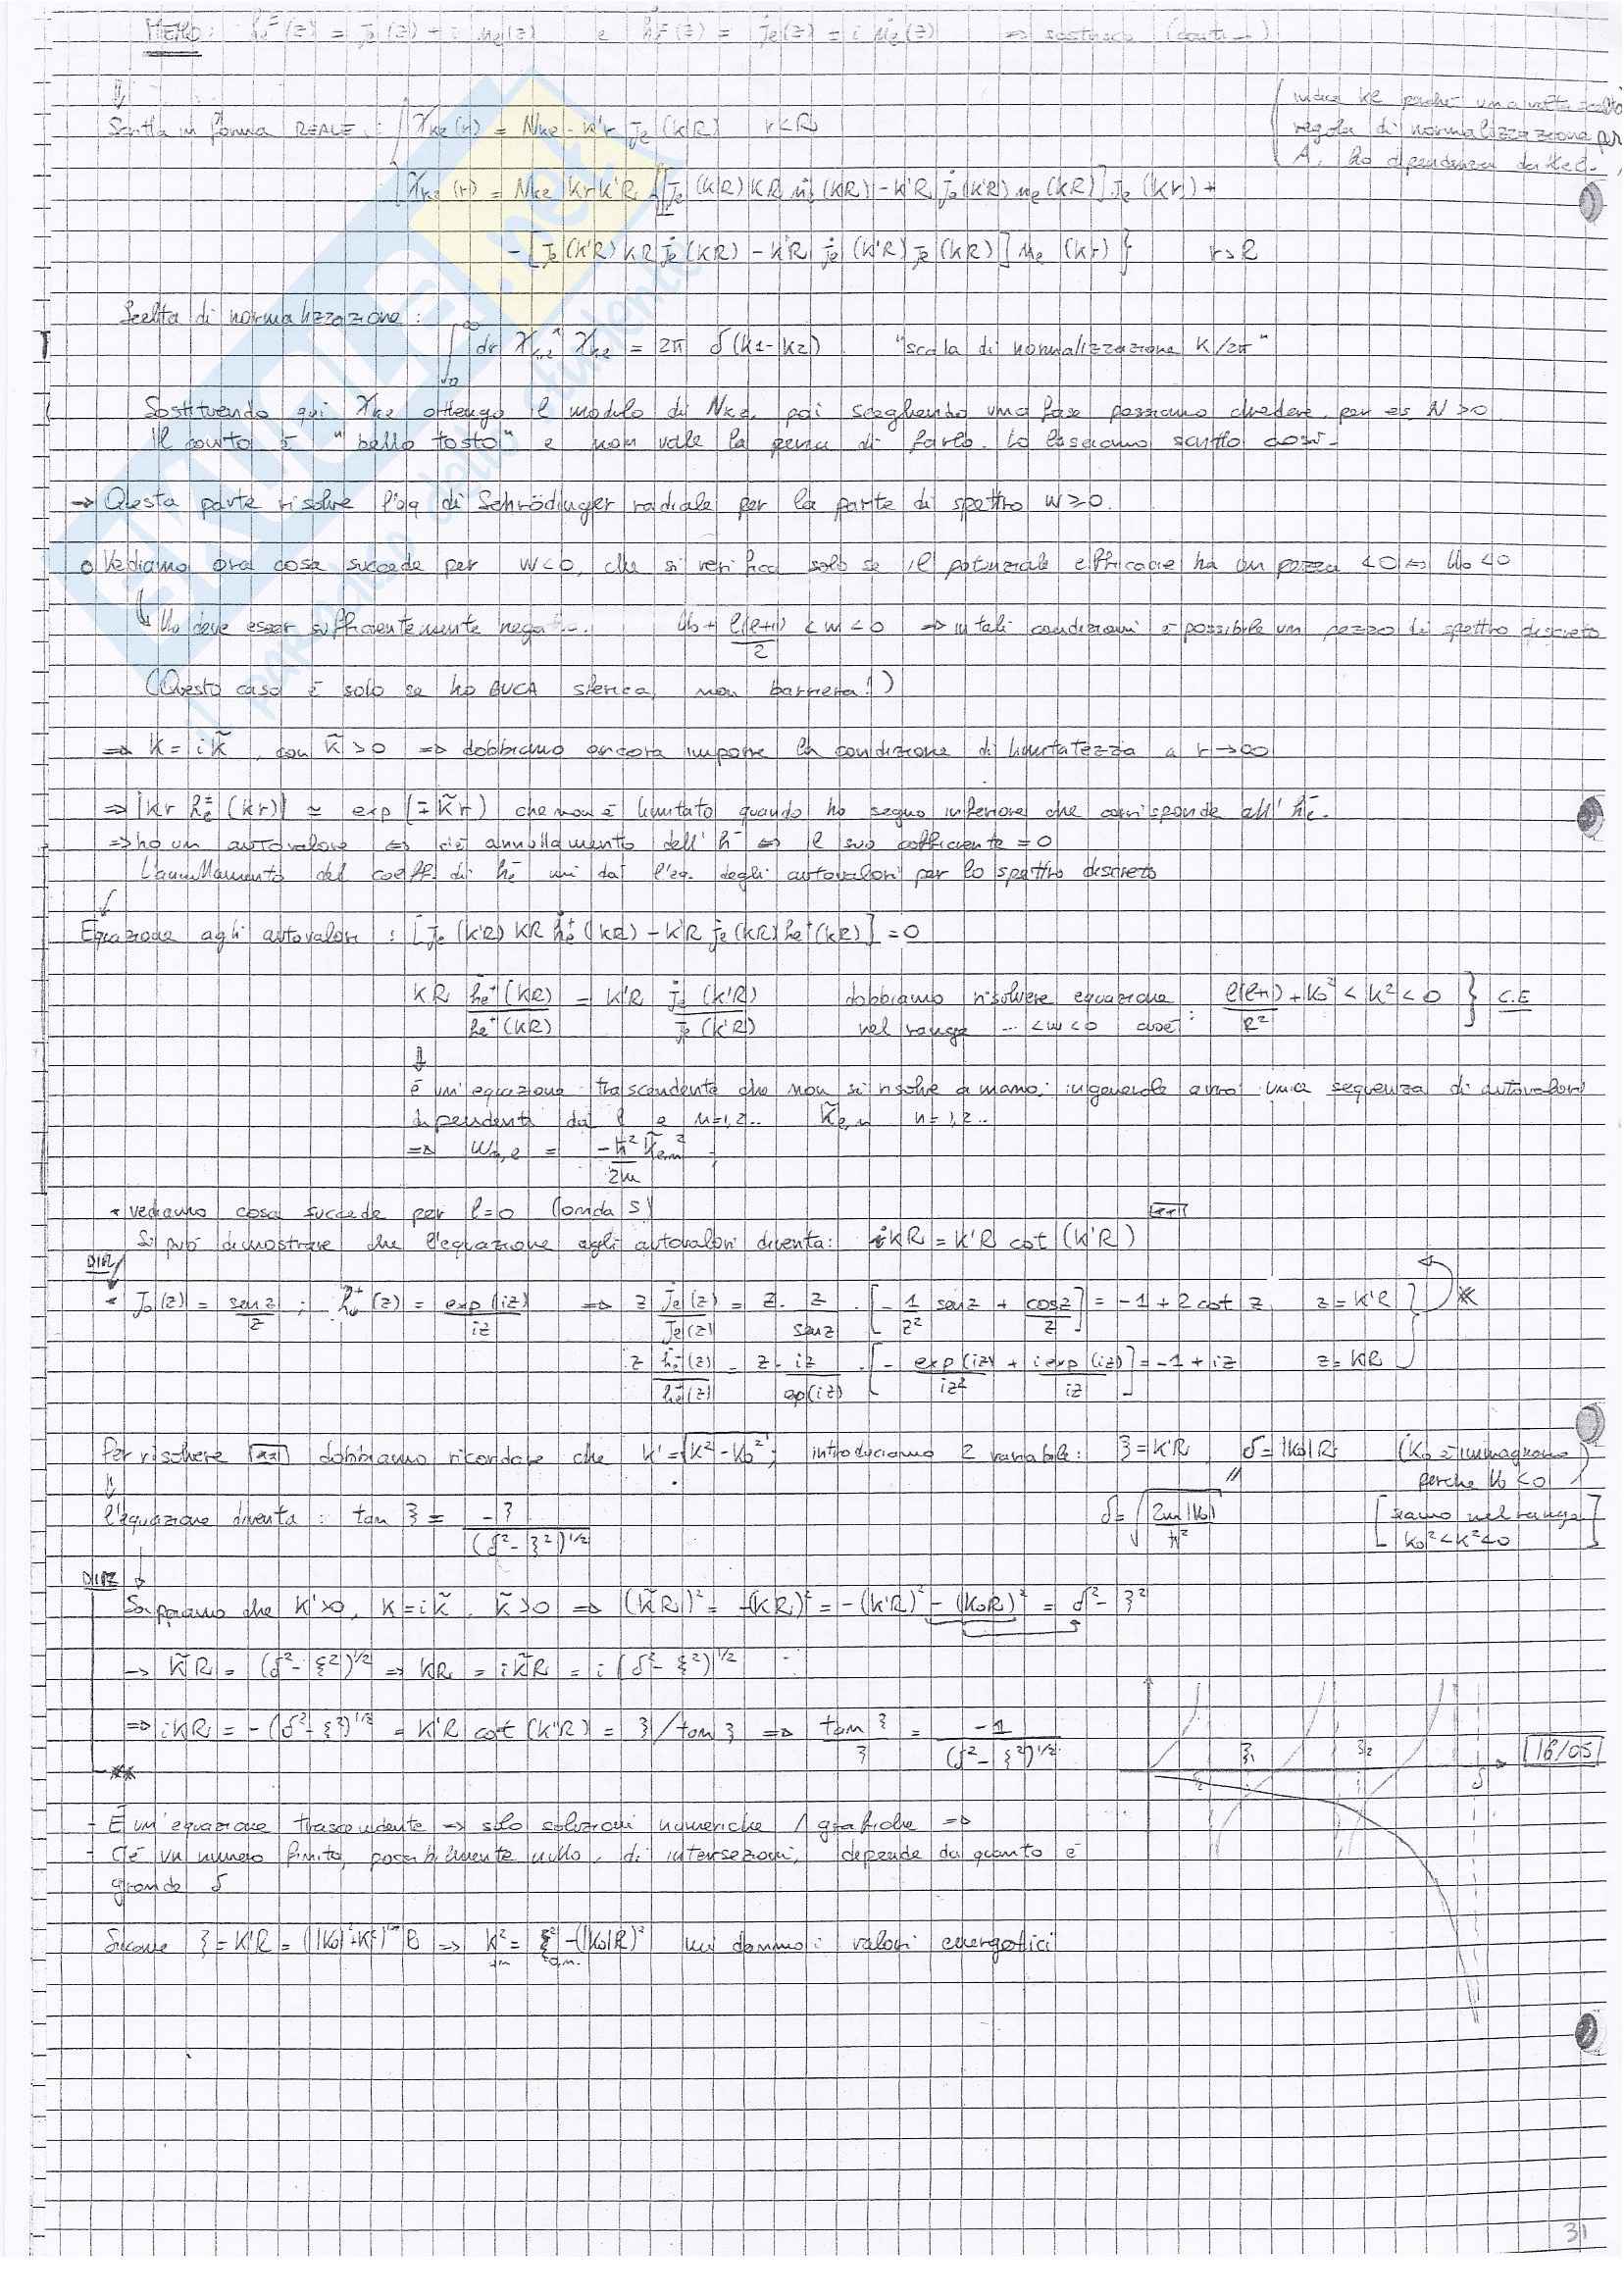 MEMO: h_l^±(z) = j_l(z) ± i n_l(z) e ḣ_l^±(z) = j̇_l(z) ± i ṅ_l(z) ⇒ sostituendo (conti →)
Scritta in forma REALE: χ_kl(r) = N_kl · k'r j_l(k'R) r<R
indice kl perché una volta scelto
regola di normalizzazione per
A, ho dipendenza da k e l.
χ_kl(r) = N_kl kr k'R {[j_l(k'R) KR ṅ_l(KR) - k'R j̇_l(k'R) n_l(KR)] j_l(kr) +
- [j_l(k'R) KR j̇_l(KR) - k'R j̇_l(k'R) j_l(KR)] n_l(kr)} r>R
Scelta di normalizzazione:
∫_0^∞ dr χ_k1l^* χ_k2l = 2π δ(k1-k2) "scala di normalizzazione k/2π"
Sostituendo qui χ_kl ottengo il modulo di N_kl, poi scegliendo una fase possiamo chiedere, per es N>0
Il conto è "bello tosto" e non vale la pena di farlo. Lo lasciamo scritto così.
⇒ Questa parte risolve l'eq di Schrödinger radiale per la parte di spettro W≥0.
o Vediamo ora cosa succede per W<0, che si verifica solo se il potenziale efficace ha un pezzo <0 ⇔ U_0<0
↳ U_0 deve esser sufficientemente negat... U_0 + l(l+1)/2 < w < 0 ⇒ in tali condizioni è possibile un pezzo di spettro discreto
(Questo caso è solo se ho BUCA sferica, non barriera!)
⇒ K = i k̃, con k̃>0 ⇒ dobbiamo ancora imporre la condizione di limitatezza a r→∞
⇒ |kr h_l^±(kr)| ≃ exp(∓k̃r) che non è limitato quando ho segno inferiore che corrisponde all'h_l^-.
⇒ ho un autovalore ⇔ c'è annullamento dell'h^- ⇔ il suo coefficiente = 0
L'annullamento del coeff. di h_l^- mi dà l'eq. degli autovalori per lo spettro discreto
Equazione agli autovalori: [j_l(k'R) KR ḣ_l^+(KR) - k'R j̇_l(KR) h_l^+(KR)] = 0
KR ḣ_l^+(KR)/h_l^+(KR) = K'R j̇_l(K'R)/j_l(K'R) dobbiamo risolvere equazione nel range ... <w<0 cioè: l(l+1)/R² + K_0² < K² < 0 } C.E
è un'equazione trascendente che non si risolve a mano; in generale avrò una sequenza di autovalori
dipendenti da l e n=1,2.. k̃_l,n n=1,2..
⇒ W_n,l = -ħ² k̃_l,n² / 2m
• vediamo cosa succede per l=0 (onda S)
Si può dimostrare che l'equazione agli autovalori diventa: iKR = K'R cot(K'R) [**]
DIM
• J_0(z) = senz/z ; h_0^+(z) = exp(iz)/iz ⇒ z j̇_l(z)/j_l(z) = z · z/senz · [-1/z² senz + cosz/z] = -1 + z cot z, z = K'R
z ḣ_0^+(z)/h_0^+(z) = z · iz/exp(iz) · [-exp(iz)/iz² + i exp(iz)/iz] = -1 + iz z = KR
Per risolvere [**] dobbiamo ricordare che K' = √(K²-K_0²); introduciamo 2 variabile: ξ = K'R δ = |K_0|R (K_0 è immaginario
perché U_0<0)
l'equazione diventa: tan ξ = -ξ/(δ²-ξ²)^1/2 δ = √(2m|U_0|/ħ²) [siamo nel range
K_0²<K²<0]
DIM2
Sappiamo che K'>0, K = i k̃, k̃>0 ⇒ (k̃R)² = -(KR)² = -(K'R)² - (K_0R)² = δ²-ξ²
→ k̃R = (δ²-ξ²)^1/2 ⇒ KR = i k̃R = i(δ²-ξ²)^1/2
⇒ iKR = -(δ²-ξ²)^1/2 = K'R cot(K'R) = ξ/tan ξ ⇒ tan ξ/ξ = -1/(δ²-ξ²)^1/2
**
ξ_1 ξ_2 δ
16/05
- È un'equazione trascendente ⇒ solo soluzioni numeriche / grafiche ⇒
- C'è un numero finito, possibilmente nullo, di intersezioni, dipende da quanto è
grande δ
Siccome ξ = K'R = (|K_0|²+K²)^1/2 R ⇒ K²_0n = ξ²_0,n - (|K_0|R)² mi danno i valori energetici
31